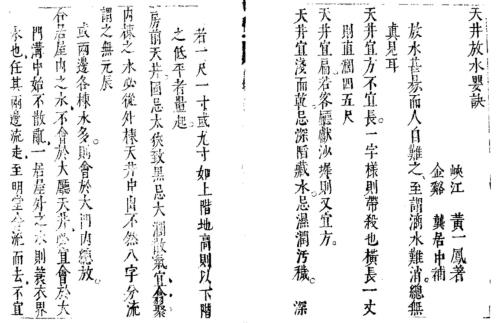 天井放水要訣
峽江 黃一鳳著
金谿 龔居中補
放水甚易而人自難之至謂滴水難消總無
真見耳
天井宜方不宜長一字樣則帶殺也橫長一丈
則直濶四五尺
天井宜扁若客廳獻沙墀則又宜方
天井宜淺而乾忌深陷藏水忌濕潤汚穢 深
若一尺一寸或九寸如上階地高則以下階
之低平者量起
房前天井固忌太狹致黑忌大濶散氣宜
內棟之水必從外棟天井中出不然八字分流
謂之無元辰
或兩邊各棟水多則會於大門內總放
各居屋內之水不會於大廳天井必宜會於大
門溝中始不散亂一居屋外之水則簑衣界
水也任其兩邊流走至明堂合流而去不宜